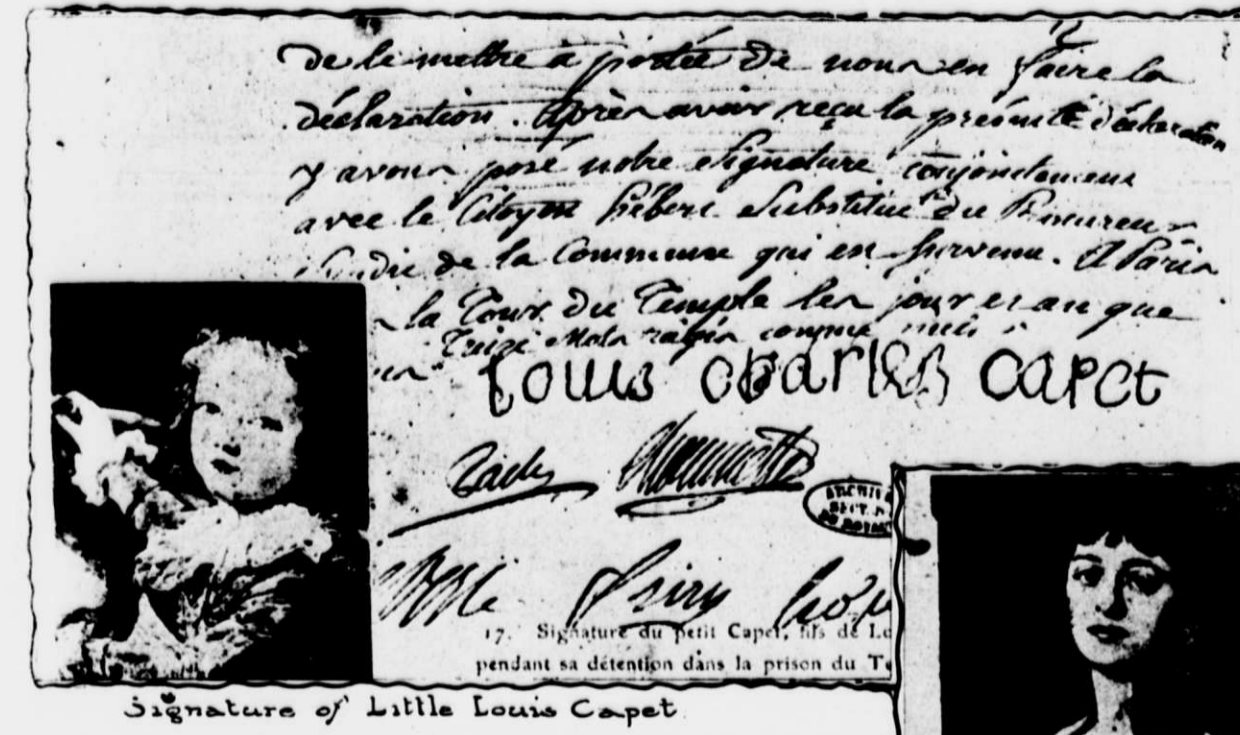 de le mettre à portée de nous en faire la
déclaration. Après avoir reçu la présente déclaration
y avons posé notre signature conjointement
avec le Citoyen hébert Substitut du Procureur
de la Commune qui est survenu. A Paris
la Tour du Temple les jour et an que
Treize mots rayés comme nuls
Louis Charles Capet
ARCHIV
SECT.
17. Signature du petit Capet, fils de Lo
pendant sa détention dans la prison du Te
Signature of Little Louis Capet